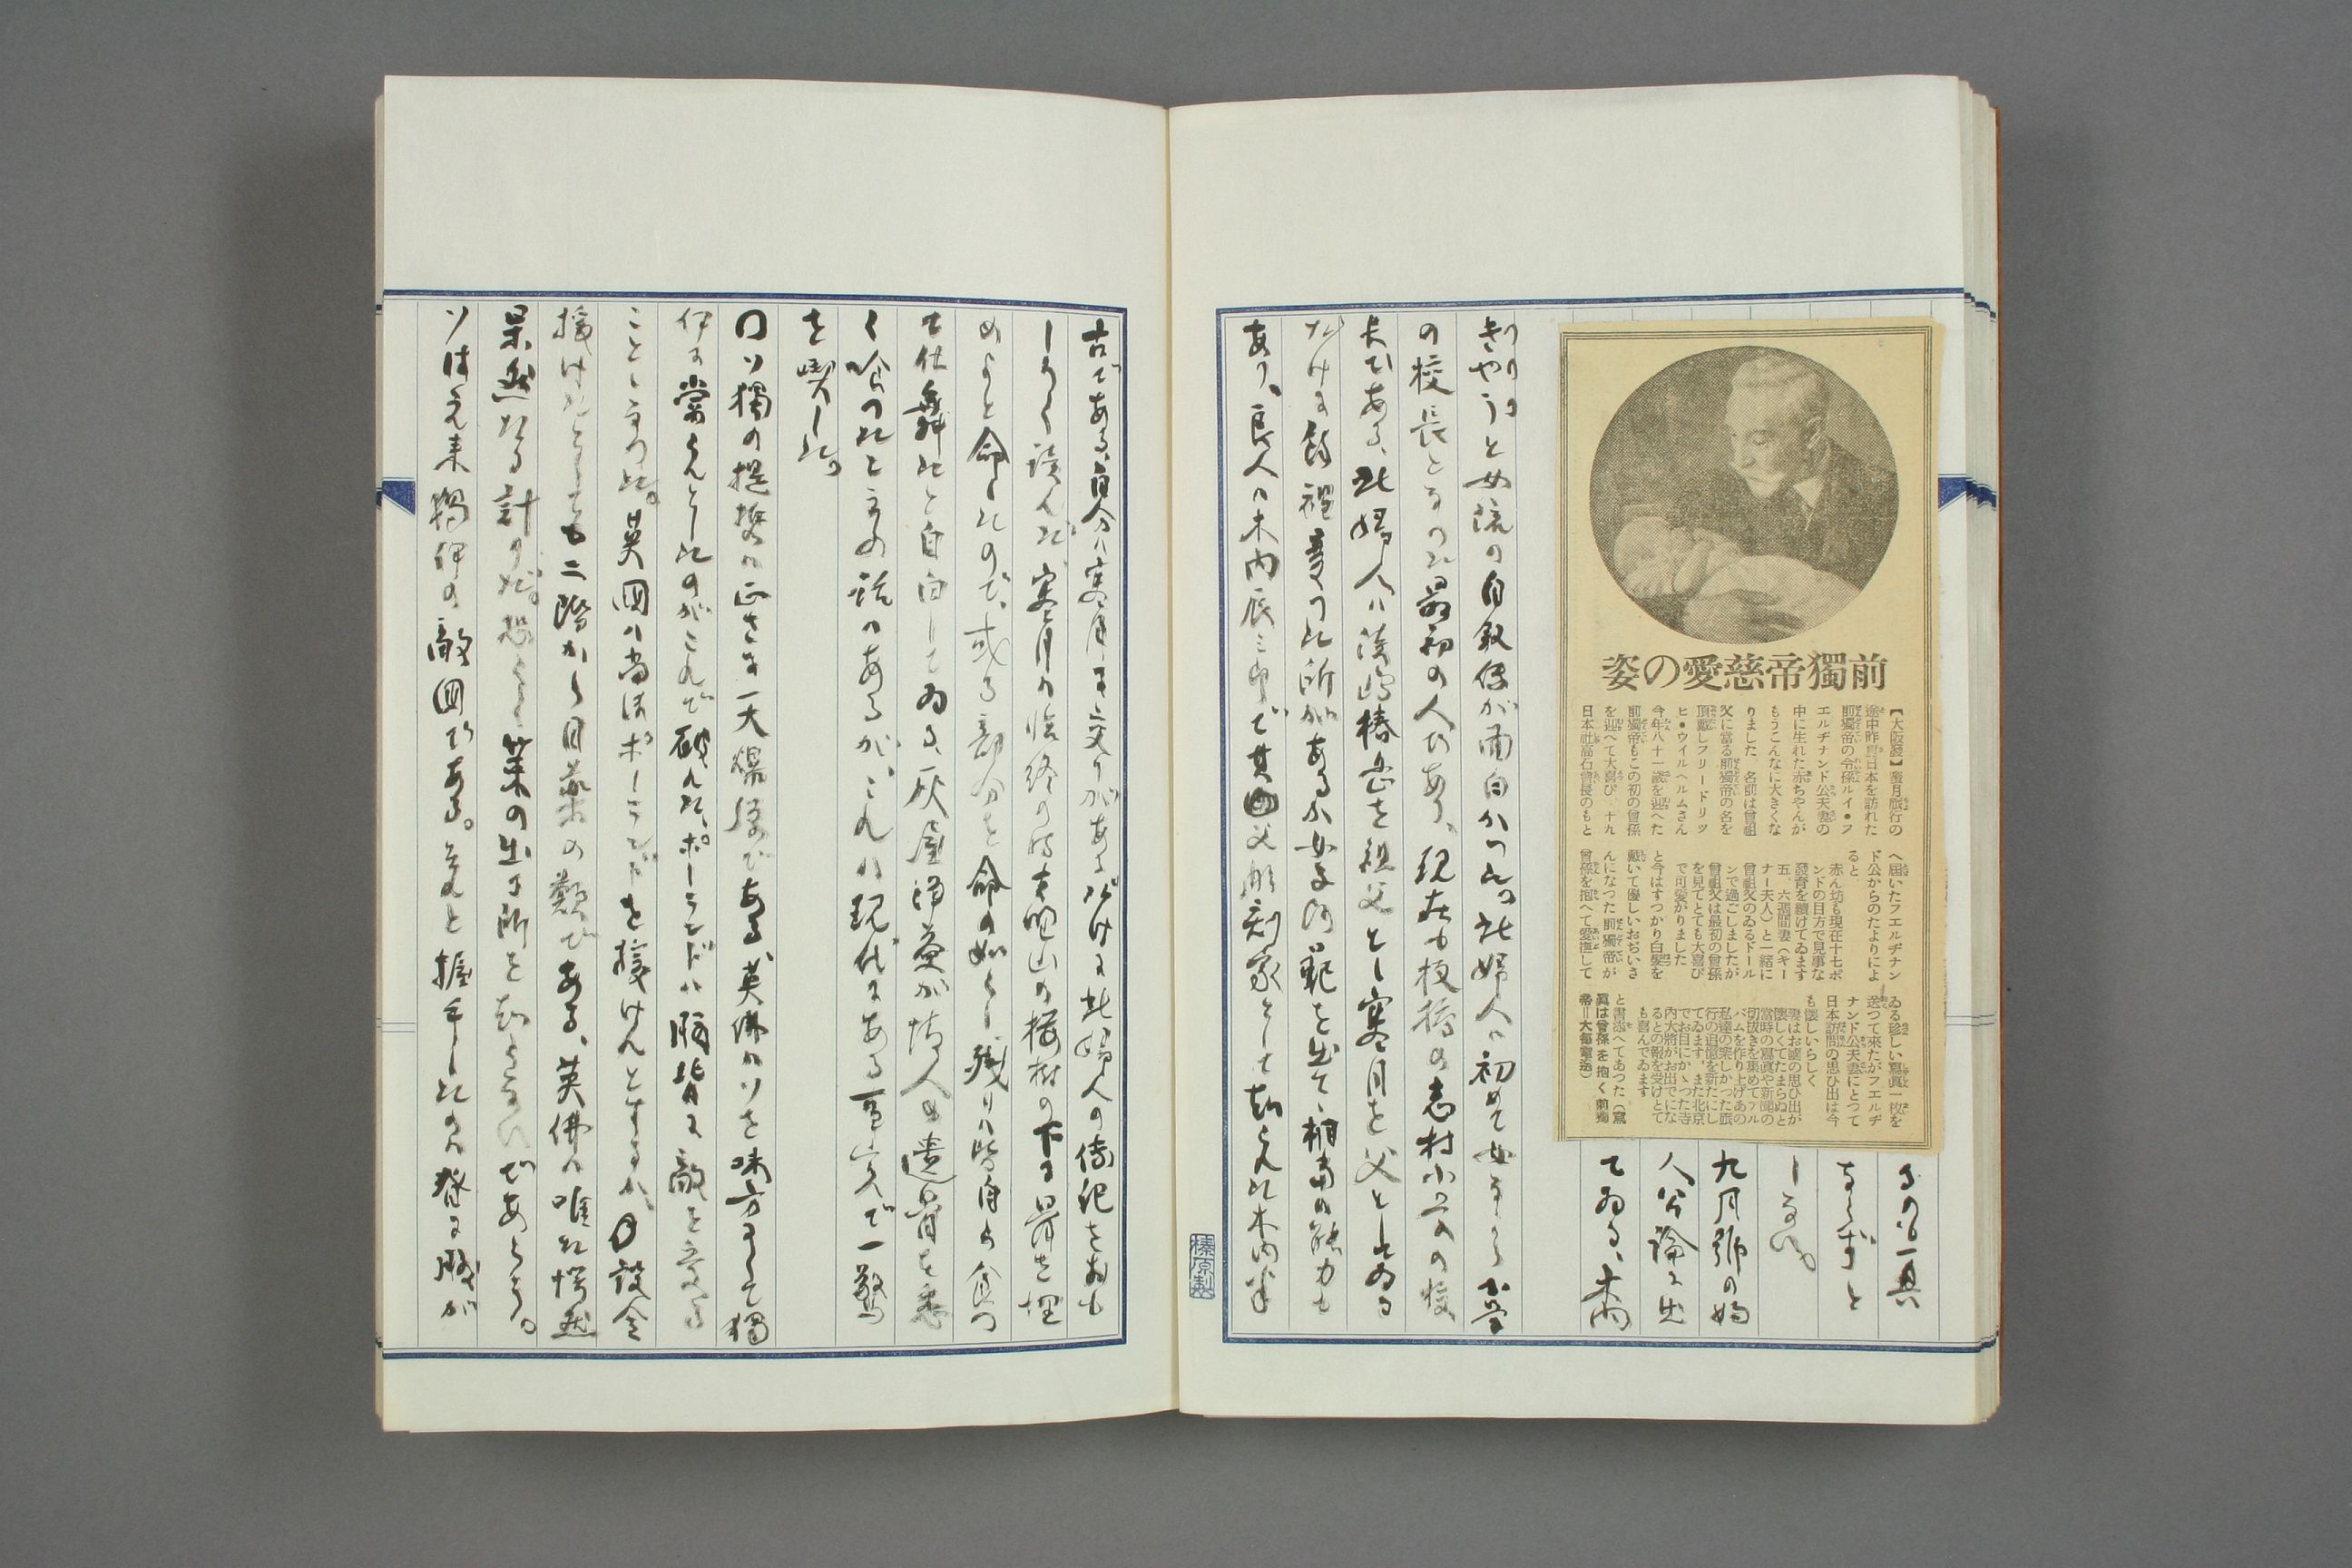 前獨帝慈愛の姿
【大阪發】蜜月旅行の
途中昨夏日本を訪れた
前獨帝の令孫ルイ・フ
エルヂナンド公夫妻の
中に生れた赤ちやんが
もうこんなに大きくな
りました、名前は曾祖
父に當る前獨帝の名を
頂戴しフリードリツ
ヒ・ウイルヘルムさん
今年八十一歳を迎へた
前獨帝もこの初の曾孫
を迎へて大喜び、十九
日本社高石會長のもと
へ届いたフエルヂナン
ド公からのたよりによ
ると
赤ん坊も現在十七ポ
ンドの目方で見事な
發育を續けてゐます
五、六週間妻（キー
ナー夫人）と一緒に
曾祖父のゐるドール
ンで過ごしましたが
曾祖父は最初の曾孫
を見てとても大喜び
で可愛がりました
と今はすつかり白髪を
戴いて優しいおぢいさ
んになつた前獨帝が
曾孫を抱へて愛撫して
ゐる珍しい寫眞一枚を
送つて來たがフエルヂ
ナンド公夫妻にとつて
日本訪問の思ひ出は今
も懷しいらしく
妻はお國の思ひ出が
懷しくてたまらぬと
當時の寫眞や新聞の
切抜きを集めてアル
バムを作り上げあの
私達の樂しかつた旅
行の追憶を新たにし
てゐます、また北京
でお目にかゝつた寺
内大將がお出でにな
るとの報を受けとて
も喜んでゐます
と書添へてあつた（寫
眞は曾孫を抱く前獨
帝＝大每電送）
ならずと
しるい。
九月號の婦
人公論に出
てゐる、木内
きやうと女流の自叙傳が面白かつた。此婦人は初めて女から小學
の校長となつた最初の人であり、現在は板橋の志村小學の校
長である、此婦人は淡嶋椿岳を祖父とし寒月を父としてゐる
あり、良人は木内辰三郎で其父は彫刻家として知られた木内半
古である、自分は寒月に交りがあるだけに此婦人の傳記をおも
しろく讀んだ、寒月の臨終の時は山の桜樹の下に骨を埋
めよと命じたので、或る部分を命の如くし残りは皆自ら食つ
て仕舞たと自白してゐる、灰屋紹益が情人の遺骨を悉
く喰つたと云ふ話はあるが、これは現代にある事實で一驚
を喫した。
〇ソ獨の提携は正さに一大爆弾である、英佛はソを味方にして獨
伊に當らんとしたのがこれで破れた、ポーランドは腹背に敵を受ける
ことゝなつた。英國は尚ほポーランドを援けんとするか、設令
援けたとしても二階から目薬の類である、英佛は唯だ愕然
呆然たる計りだ。恐らく策の出る所を知らないであらう。
ソは元来獨伊の敵國である。それと握手したのは餘に腹が
榛原製